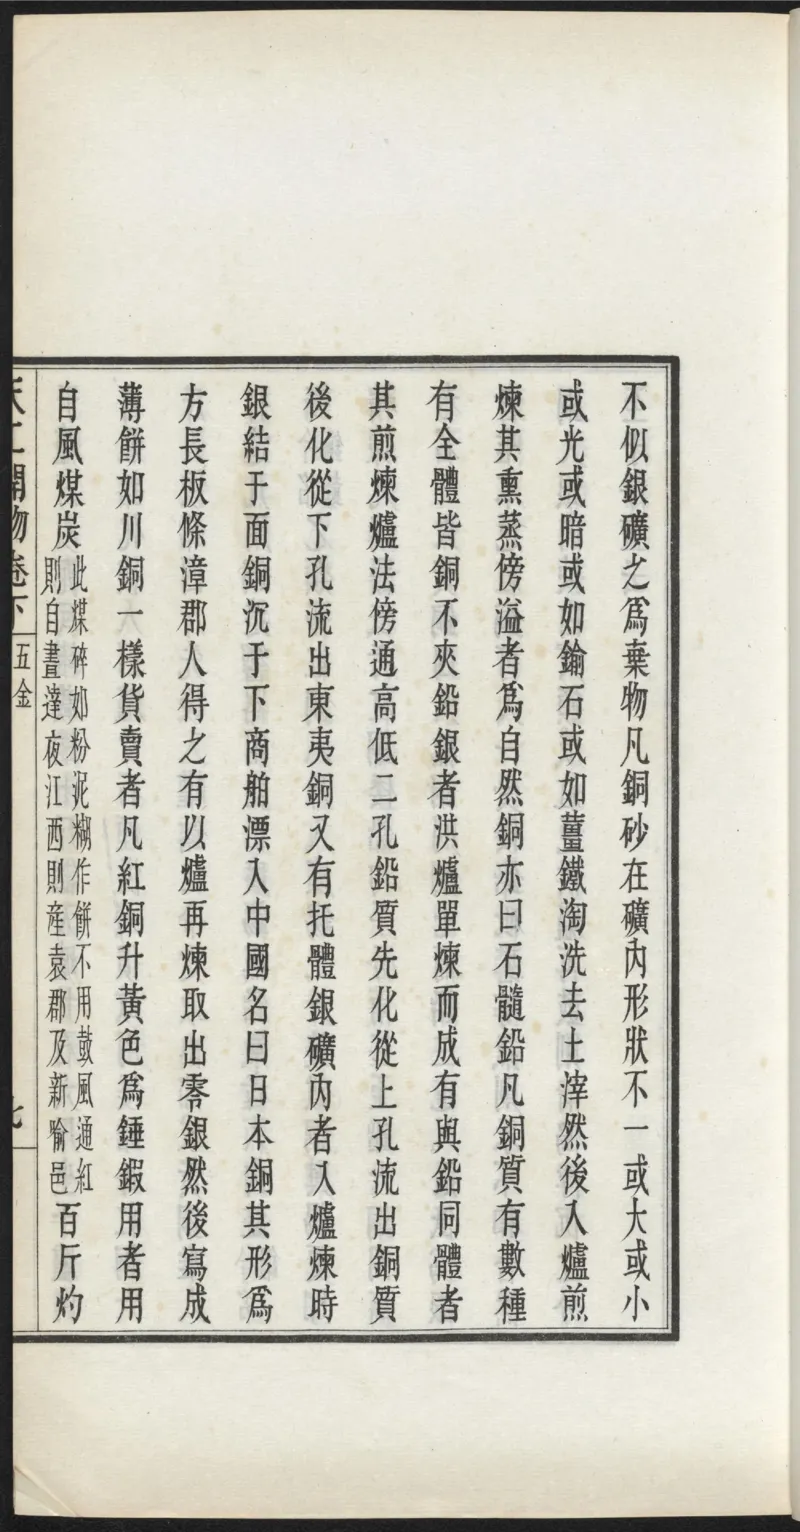 不似銀礦之爲棄物凡銅砂在礦內形狀不一或大或小
或光或暗或如鍮石或如薑鐵淘洗去土滓然後入爐煎
煉其熏蒸傍溢者爲自然銅亦曰石髓鉛凡銅質有數種
有全體皆銅不夾鉛銀者洪爐單煉而成有與鉛同體者
其煎煉爐法傍通高低二孔鉛質先化從上孔流出銅質
後化從下孔流出東夷銅又有托體銀礦內者入爐煉時
銀結于面銅沉于下商舶漂入中國名曰日本銅其形爲
方長板條漳郡人得之有以爐再煉取出零銀然後寫成
薄餅如川銅一樣貨賣者凡紅銅升黃色爲錘鍜用者用
自風煤炭
此煤碎如粉泥糊作餅不用鼓風通紅
則自晝達夜江西則産袁郡及新喻邑
百斤灼
天工開物卷下
五金
七